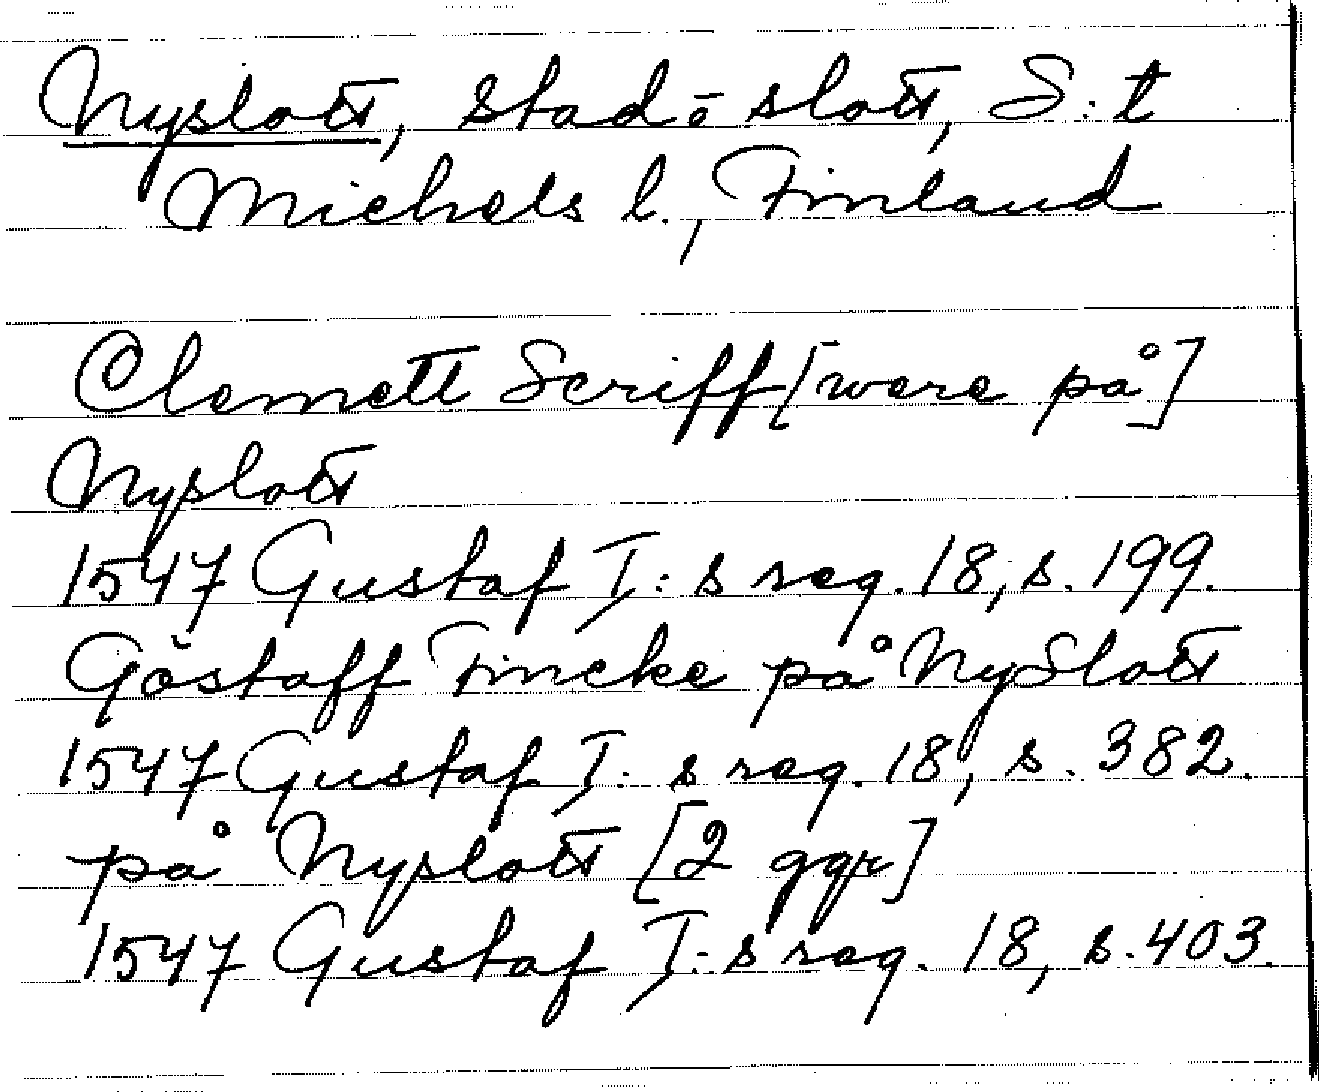 Nyslott, stad o slott, S:t
Michels l., Finland
Clemett Scriff [were på]
Nyslott
1547 Gustaf I:s reg. 18, s. 199.
Göstaff Fincke på NySlott
1547 Gustaf I:s reg. 18, s. 382.
på Nyslott [2 ggr]
1547 Gustaf I:s reg. 18, s. 403.